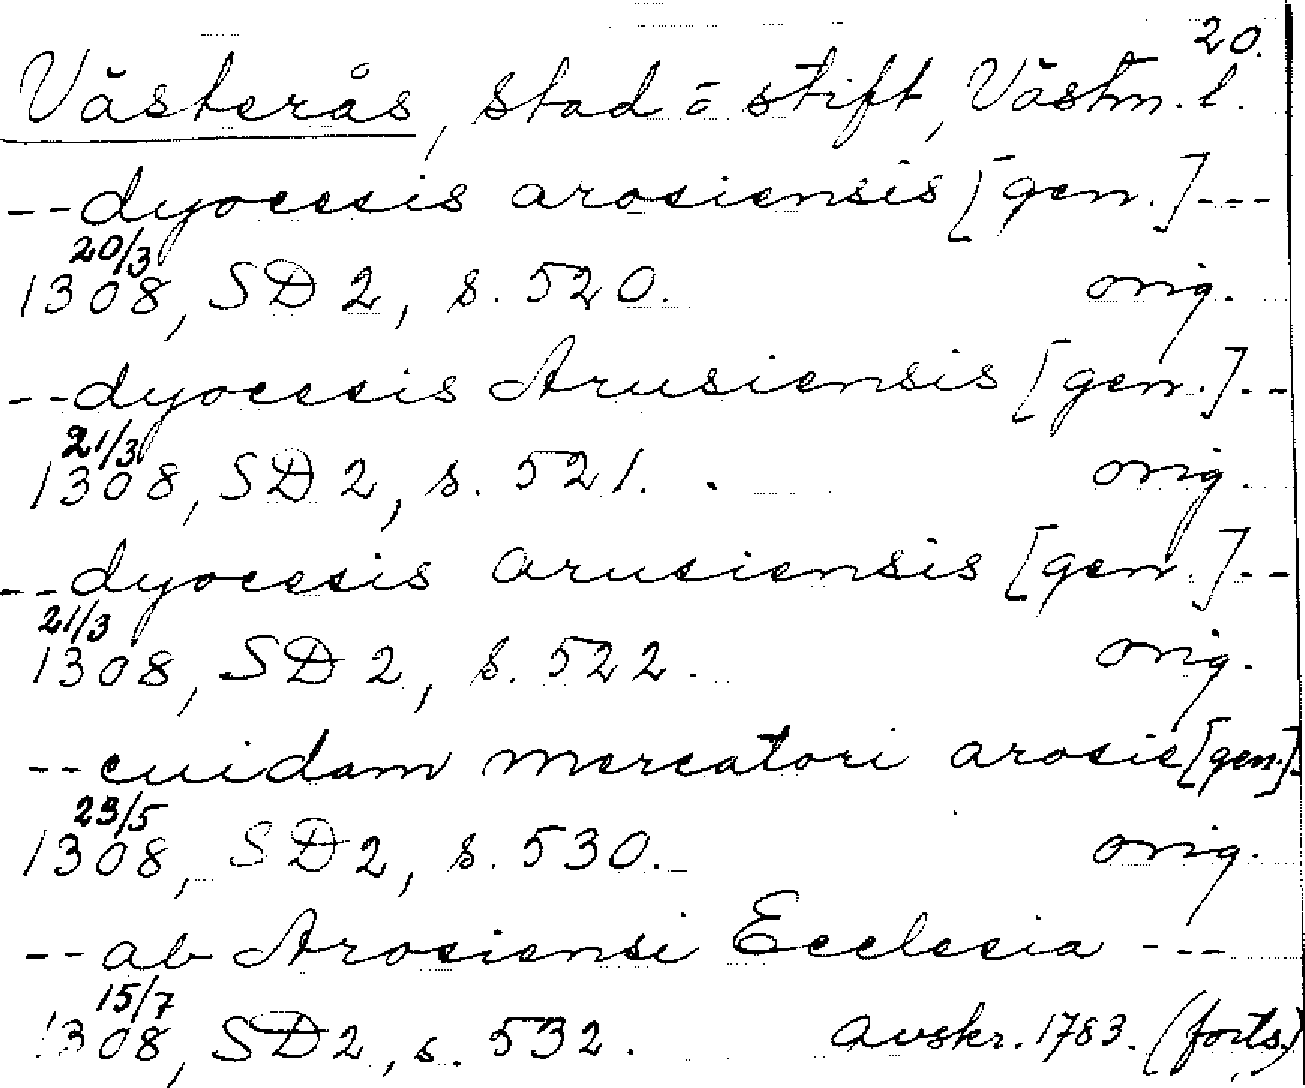 20.
Västerås, stad o stift, Västm. l.
-- dyocesis arosiensis [gen.] ---
20/3
1308, SD 2, s. 520. orig.
-- dyocesis Arusiensis [gen.] --
21/3
1308, SD 2, s. 521. orig.
-- dyocesis arusiensis [gen.] --
21/3
1308, SD 2, s. 522. orig.
-- cuidam mercatori arosie [gen.]
23/5
1308, SD 2, s. 530. orig.
-- ab Arosiensi Ecclesia ---
15/7
1308, SD 2, s. 532. avskr. 1783. (forts.)